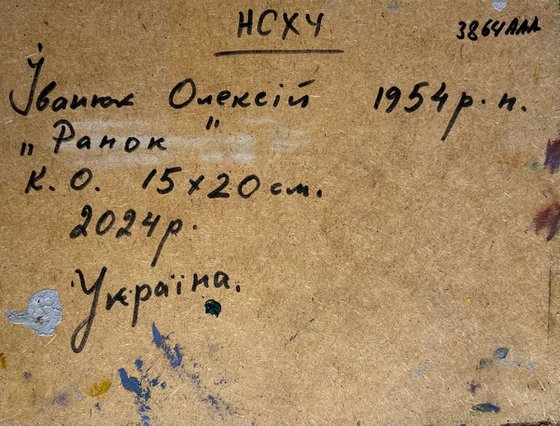 НСХУ
3864АЛЛ
Іванюк Олексій 1954р.н.
„Ранок"
К.О. 15х20см.
2024р.
Україна.